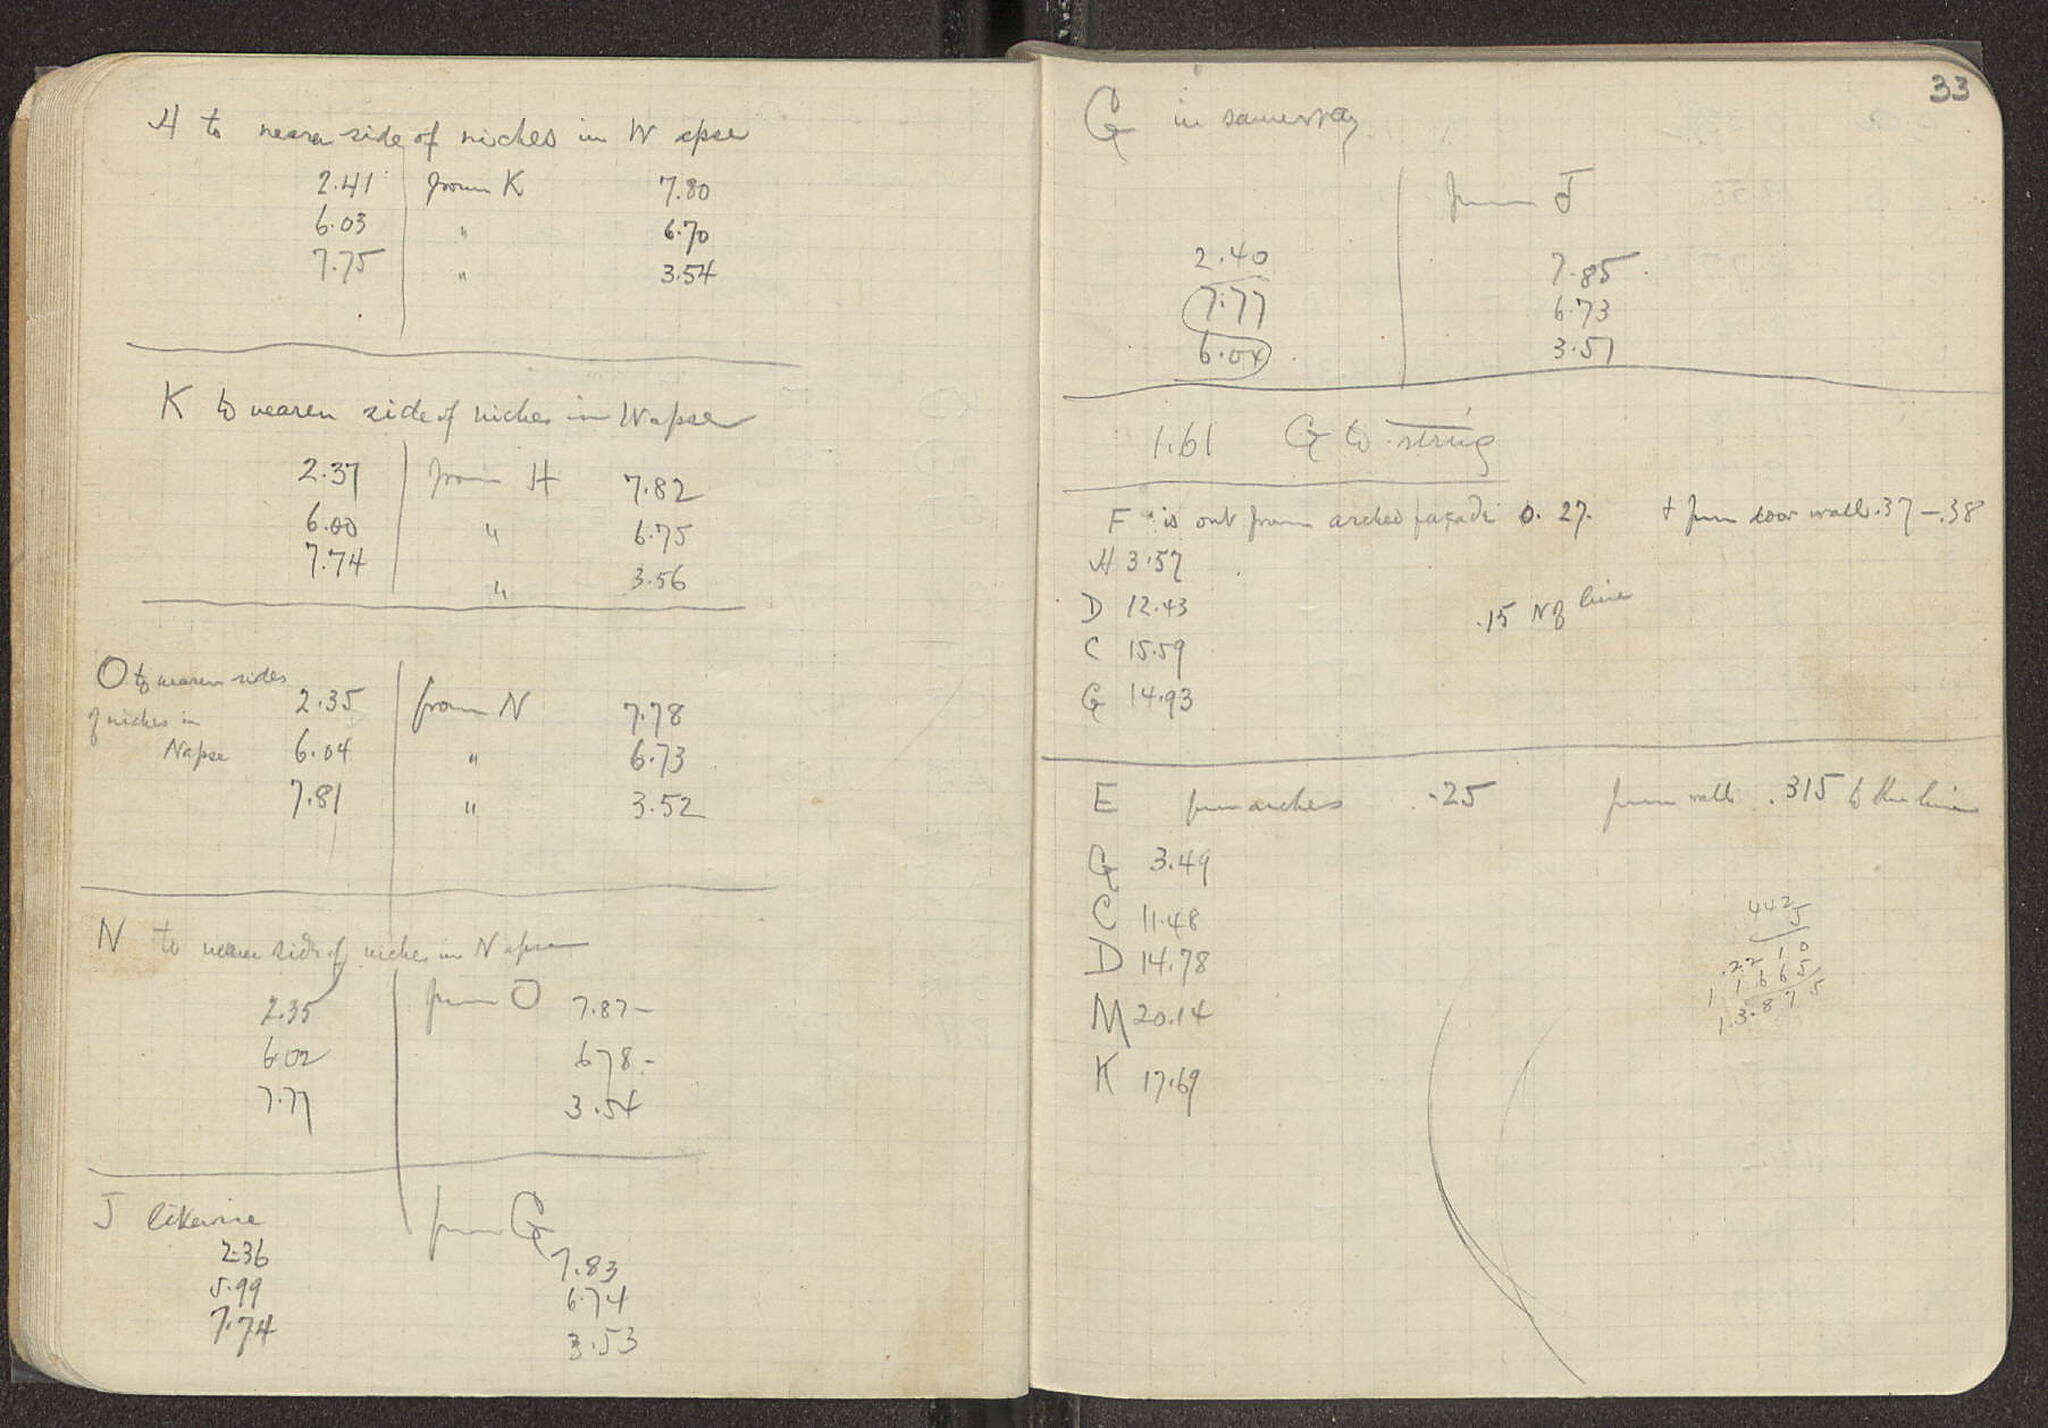 H to nearer side of niches in W apse
2.41 from K 7.80
6.03 " 6.70
7.75 " 3.54
K to nearer side of niches in W apse
2.37 from H 7.82
6.00 " 6.75
7.74 " 3.56
O to nearer sides
of niches in
N apse
2.35 from N 7.78
6.04 " 6.73
7.81 " 3.52
N to nearer side of niches in N apse
2.35 from O 7.87-
6.02 6.78-
7.77 3.54
J likewise from G
2.36 7.83
5.99 6.74
7.74 3.53
33
G in same way
from J
2.40 7.85
7.77 6.73
6.04 3.51
1.61 G to string
F is out from arched façade 0.27. + from door wall .37-.38
H 3.57
D 12.43 .15 N of line
C 15.59
G 14.93
E from arches .25 from wall .315 to the line
G 3.49
C 11.48
D 14.78
M 20.14
K 17.69
442
5
.2210
11665
13.875